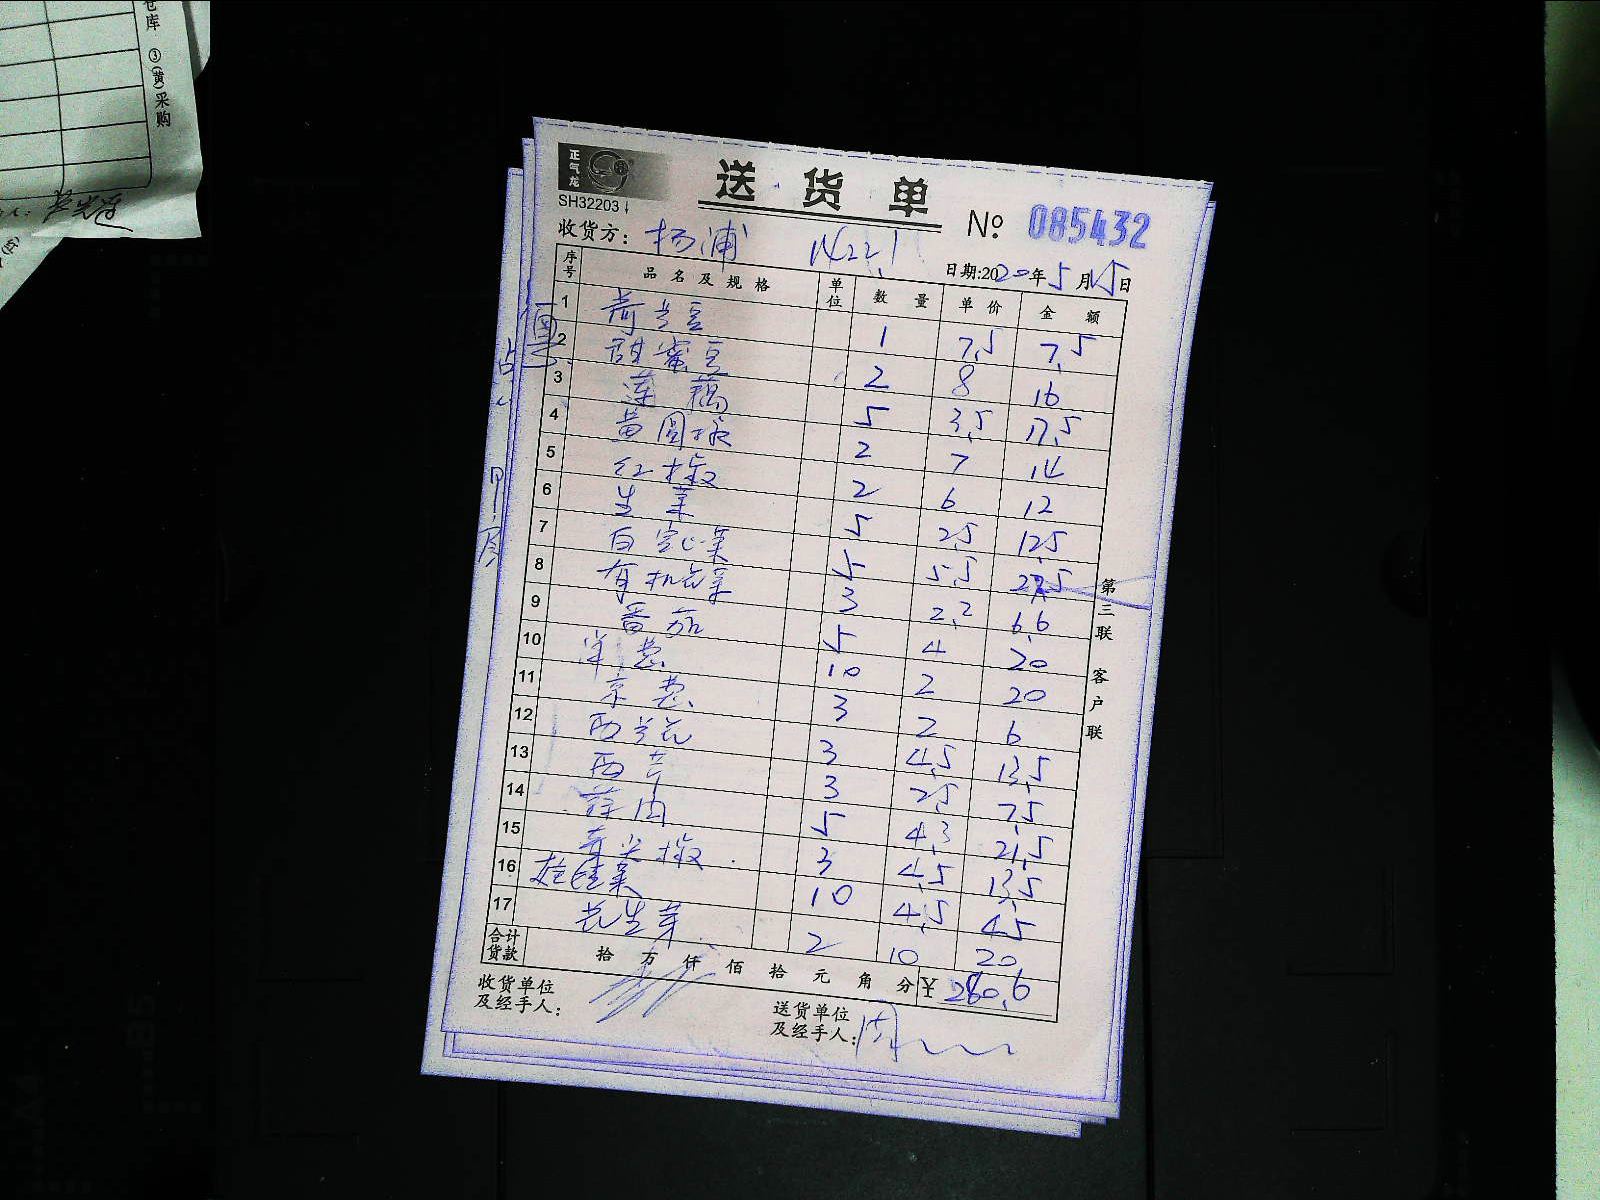 仓库 ③(黄)采购
正气龙
送货单
SH32203
№ 085432
收货方: 杨浦
日期:2020年5月15日
序号 品名及规格 单位 数量 单价 金额
1 荷兰豆 1 7.5 7.5
2 甜蜜豆 2 8 16
3 莲藕 5 3.5 17.5
4 黄圆椒 2 7 14
5 红椒 2 6 12
6 生菜 5 2.5 12.5
7 白空心菜 5 5.5 27.5
8 有机花菜 3 2.2 6.6
9 番茄 5 4 20
10 洋葱 10 2 20
11 京葱 3 2 6
12 西兰花 3 4.5 13.5
13 西芹 3 2.5 7.5
14 5 4.3 21.5
15 青尖椒 3 4.5 13.5
16 娃娃菜 10 4.5 45
17 花生芽 2 10 20
合计货款 拾 万 仟 佰 拾 元 角 分 ¥ 280.6
收货单位及经手人:
送货单位及经手人: 周
第三联 客户联